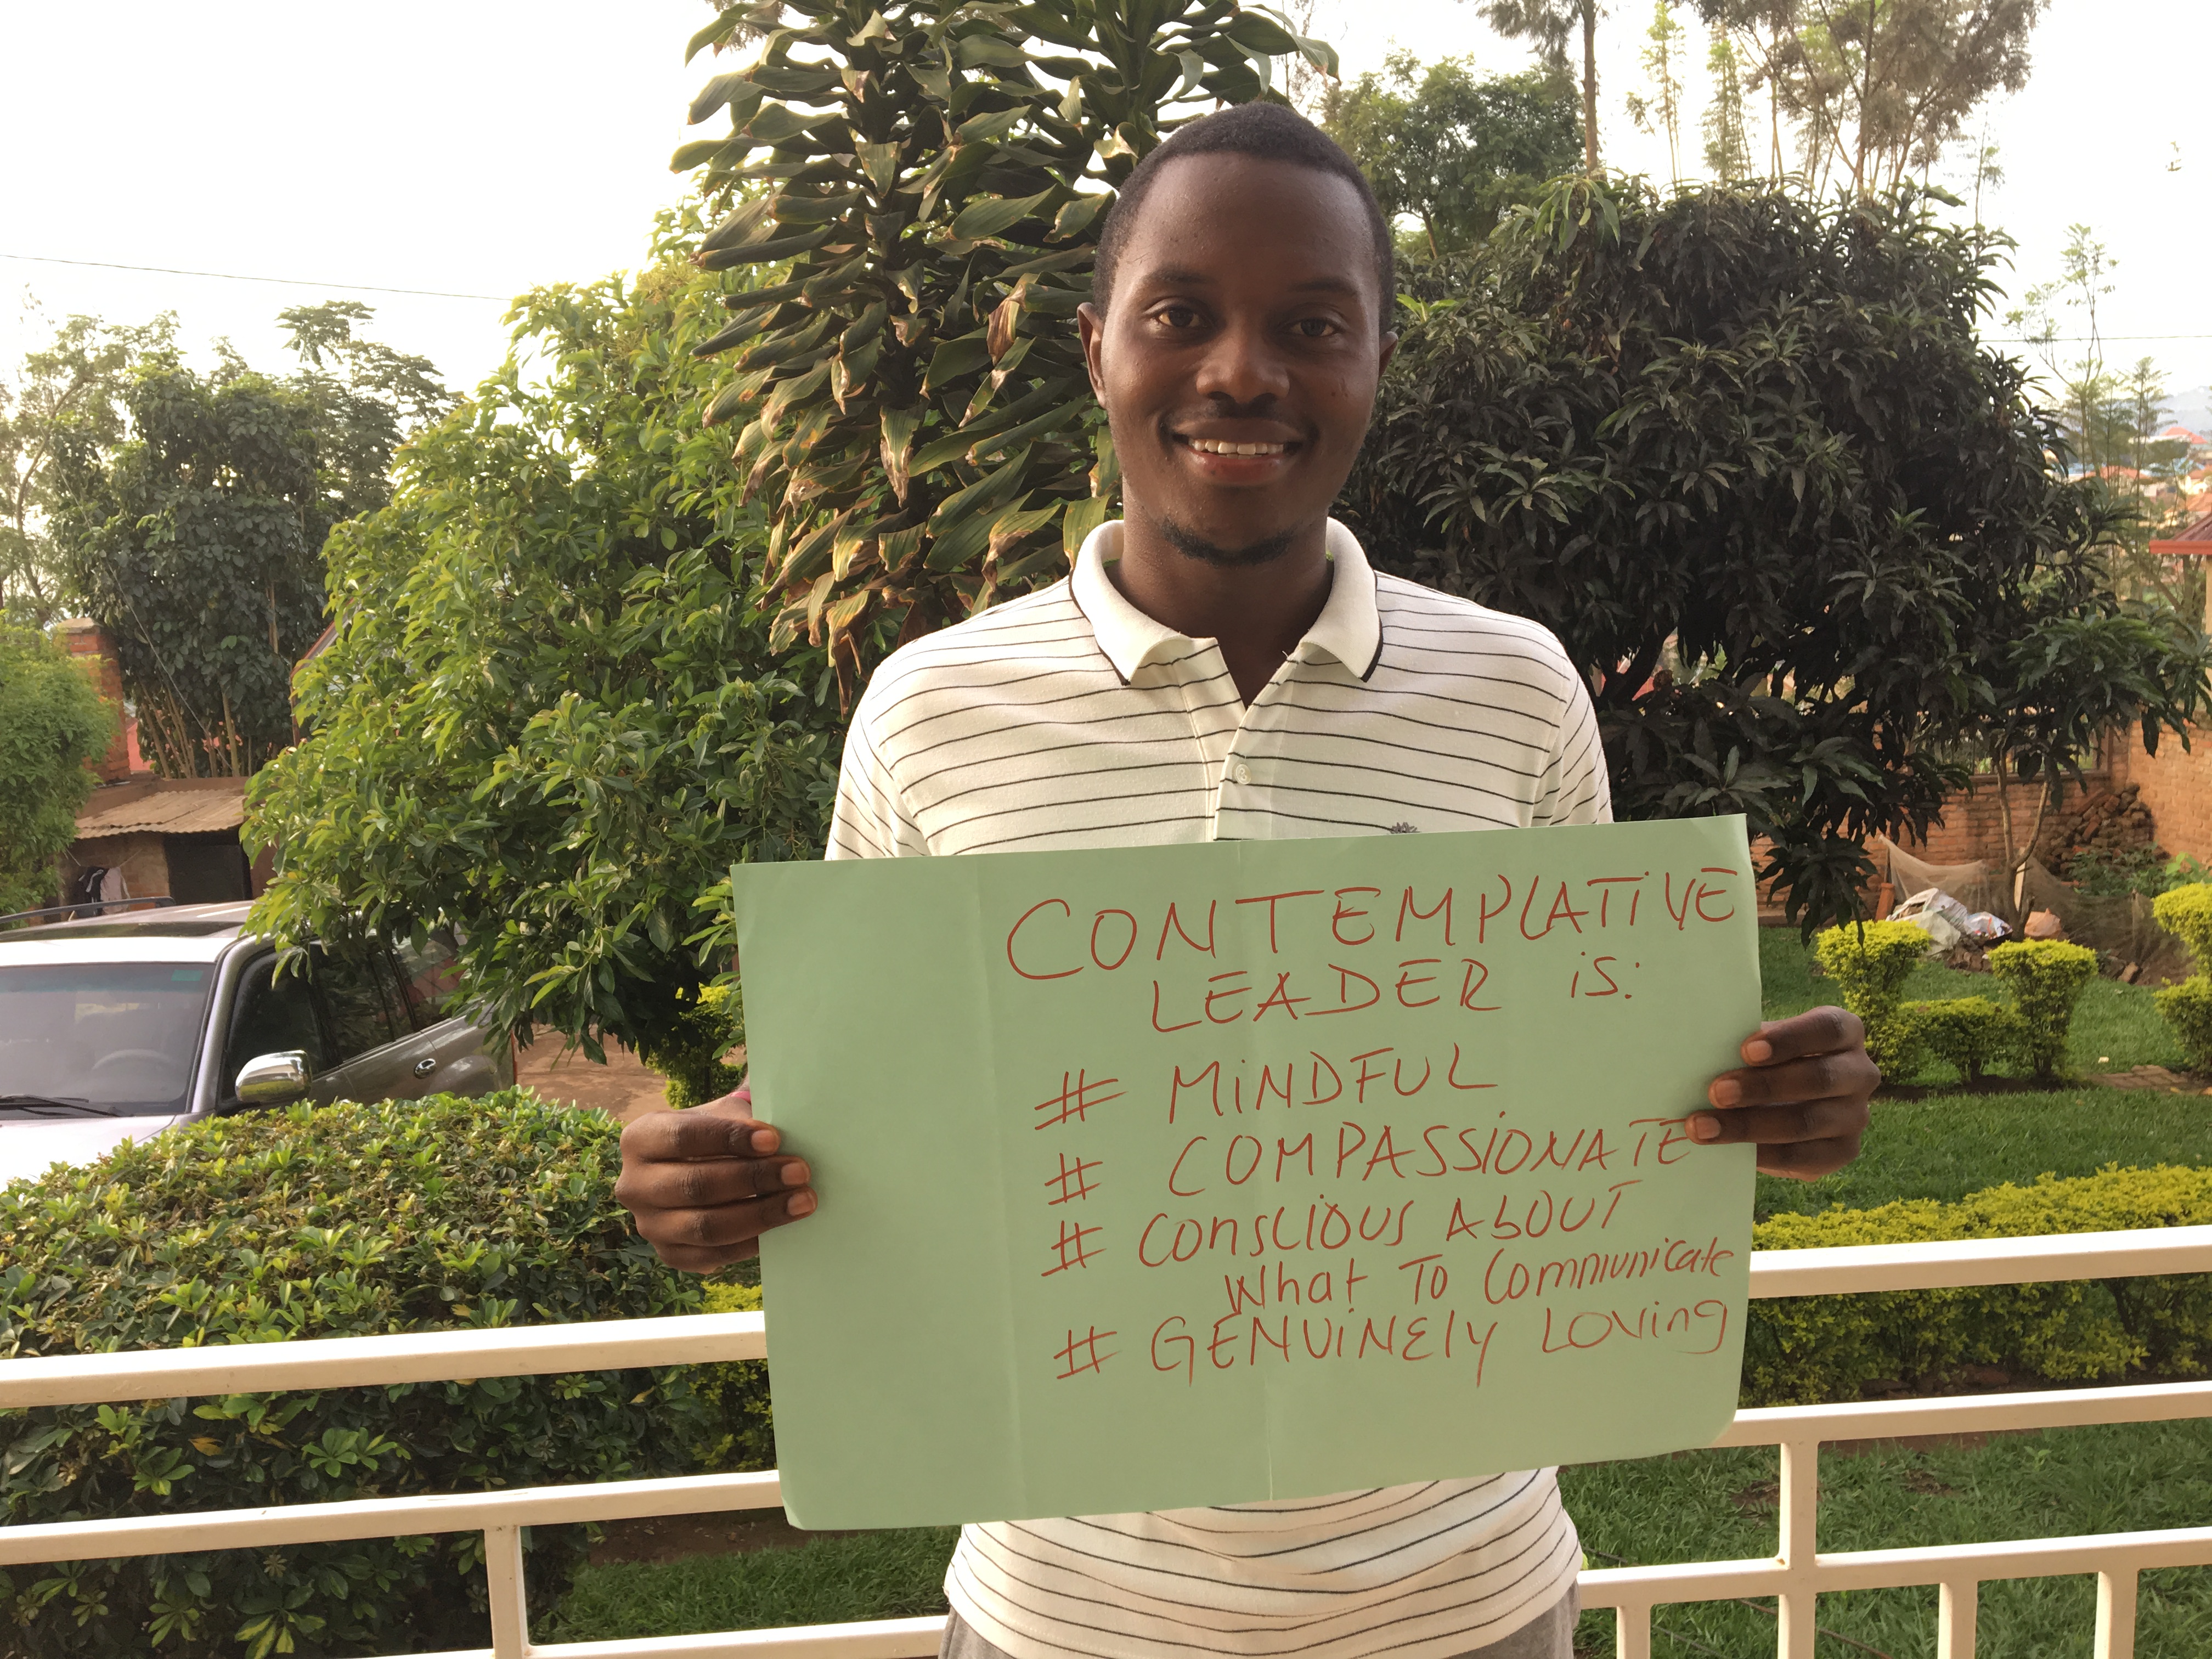 CONTEMPLATIVE
LEADER is:
# MiNDFUL
# COMPASSiONATE
# CONSCiOUS AbOUT
What To Communicate
# GENUiNEly Loving